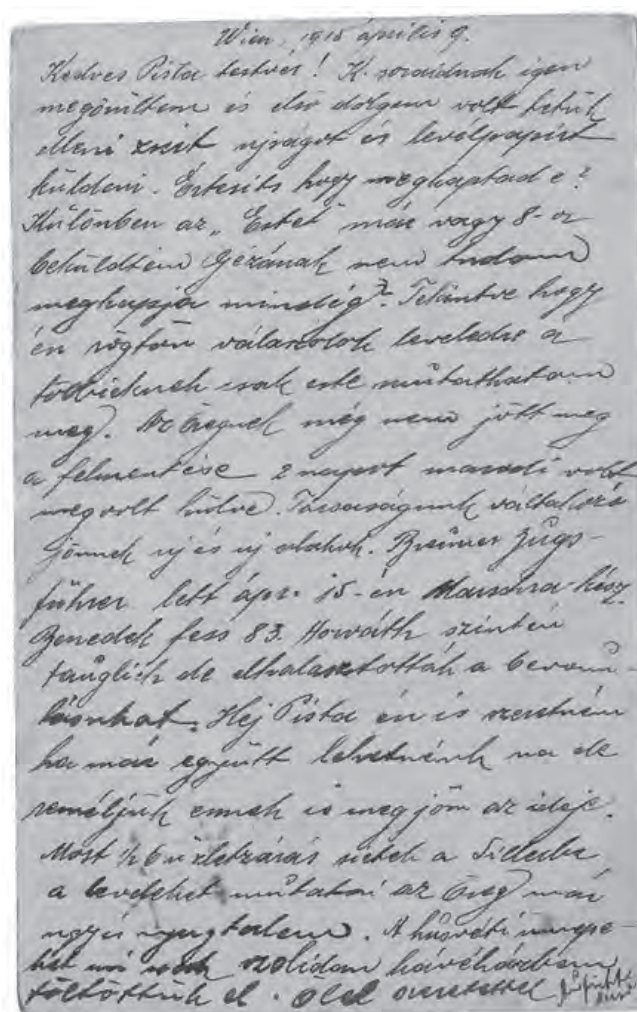 Wien, 1915 április 9.
Kedves Pista testvér! K. soraidnak igen
megörültem és első dolgom volt tetük
elleni szert ujságot és levélpapirt
küldeni. Értesits hogy megkaptad e?
Különben az "Estet" már vagy 8-or
beküldtem Gézának nem tudom
megkapja mindég? Tekintve hogy
én rögtön válaszolok leveledre a
többieknek csak este mutathatom
meg. Az öregnek még nem jött meg
a felmentése 2 napot maradi volt
megvolt hülve. Társaságunk váltakozó
jönnek uj és uj alakok. Breuner Zugs-
führer lett ápr. 15-én Marschra kész.
Benedek fess 83. Horváth szintén
tauglich de elhalasztották a bevonu-
lásukat. Hej Pista én is szeretném
ha már együtt lehetnénk na de
reméljük ennek is megjön az ideje.
Most ½ 6 üzletzárás sietek a
a leveleket mutatni az Öreg már
ugyis nyugtalan. A húsvéti ünnepe-
ket mi csak szolidan kávéházban
töltöttük el. Ölel szeretettel